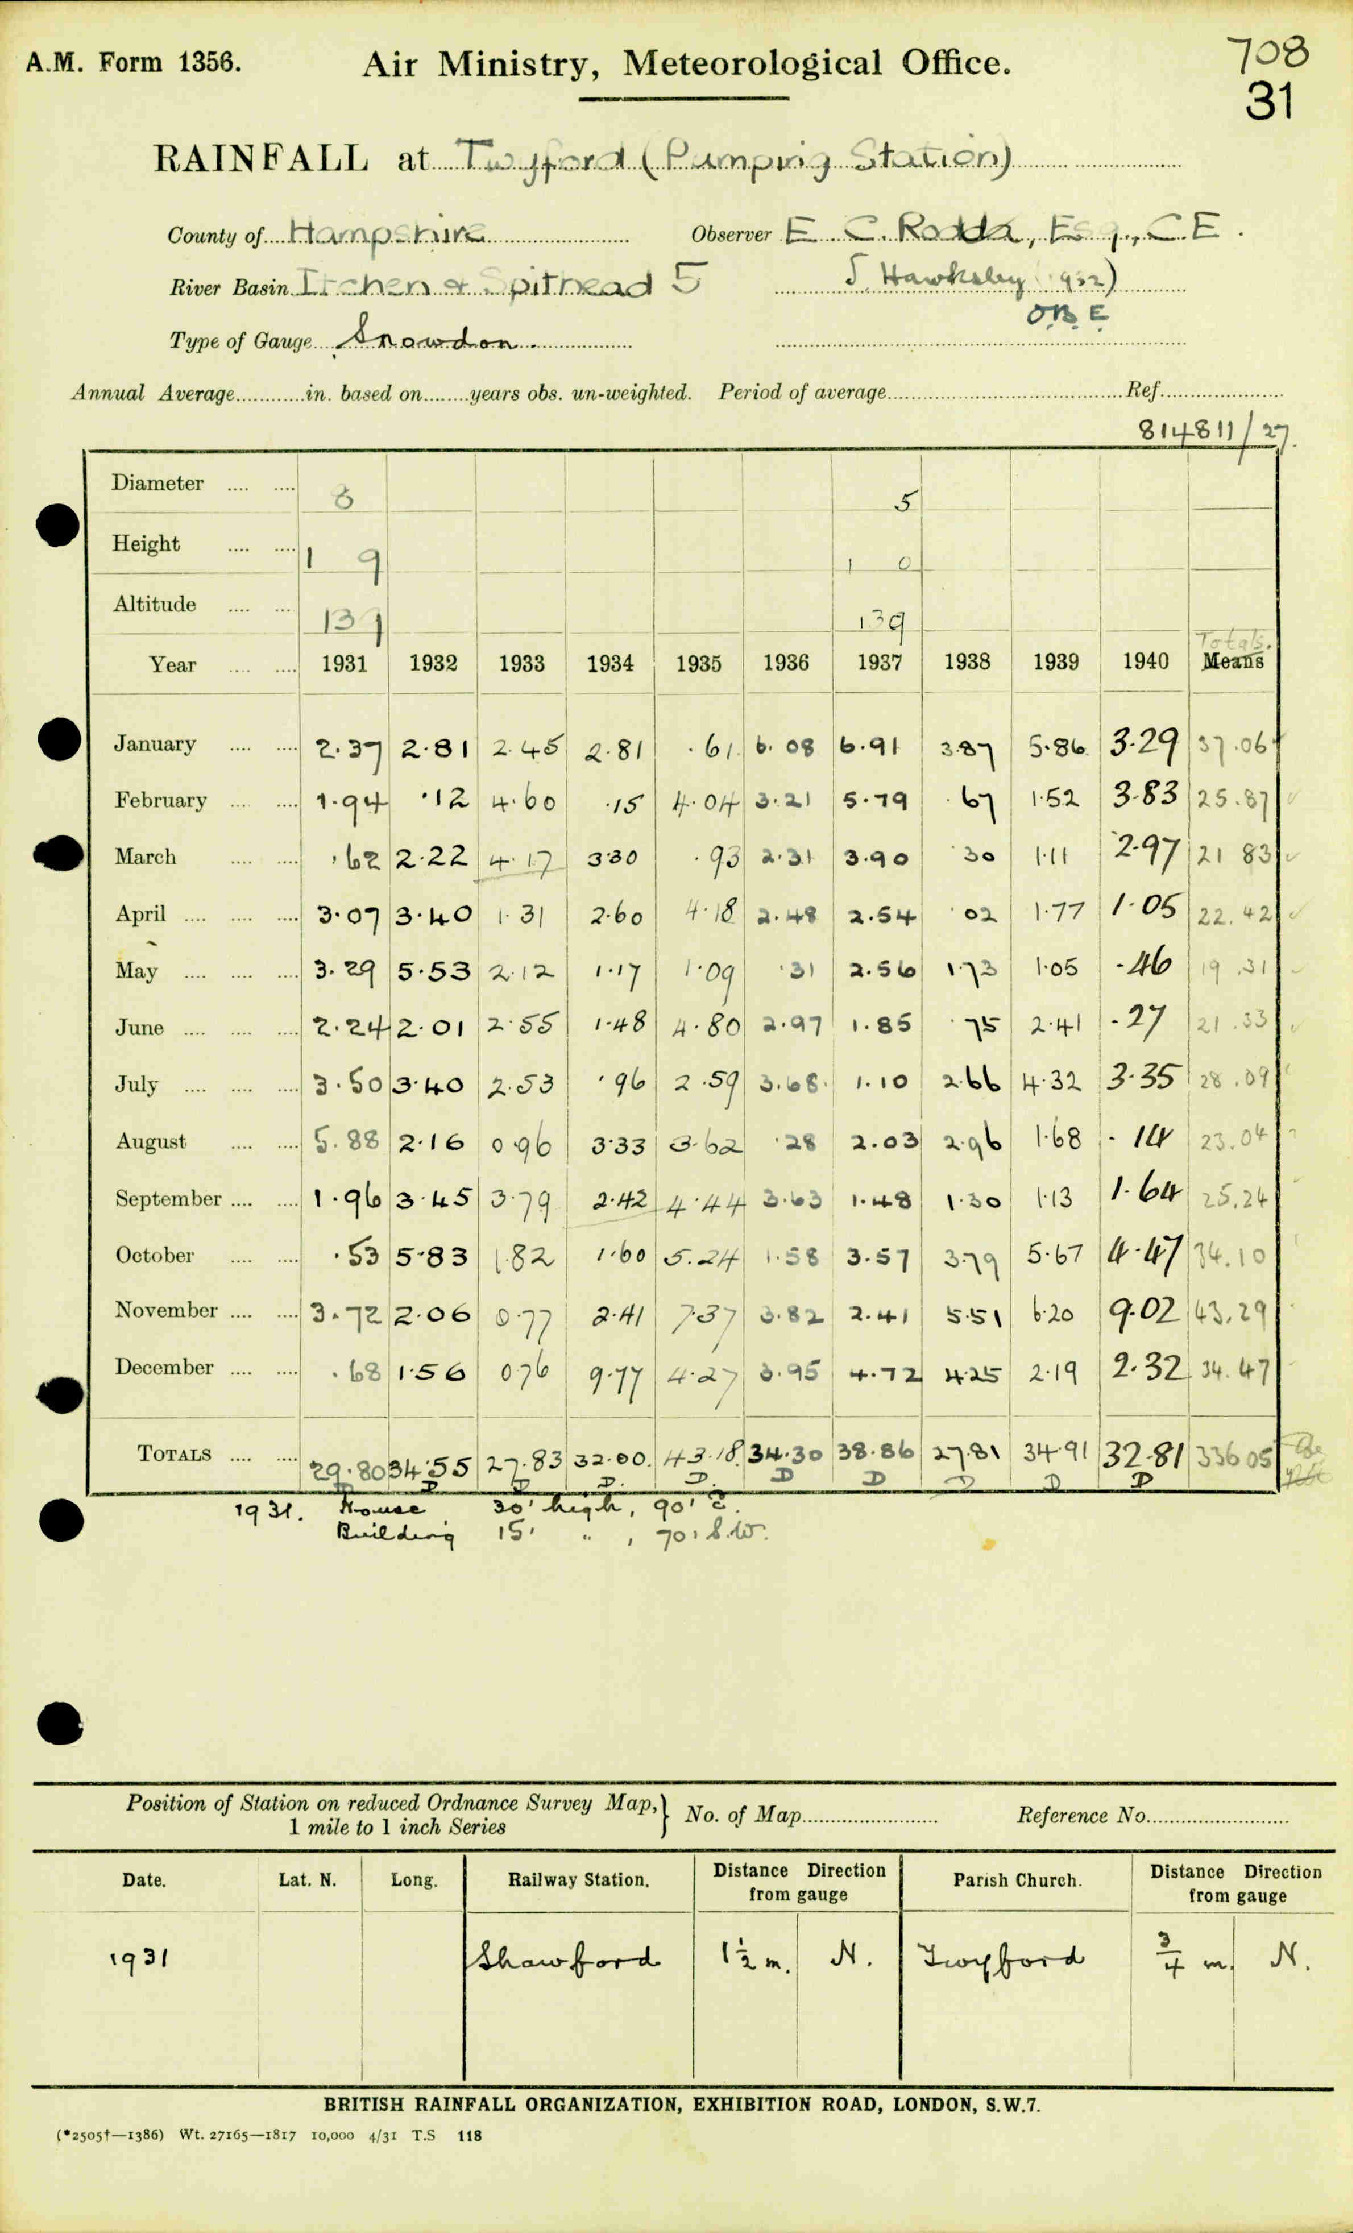 A.M. Form 1356. Air Ministry, Meteorological Office. 708
31
RAINFALL at Twyford (Pumping Station)
County of Hampshire Observer E. C. Rodda, Esq., C.E.
River Basin Itchen & Spithead 5 J. Hawksley (1932)
O.B.E
Type of Gauge Snowdon.
Annual Average............in. based on........years obs. un-weighted. Period of average.............Ref.............
814811/27.
Diameter .... .... 8 5
Height .... .... 1 9 1 0
Altitude .... .... 139 139
Totals.
Year .... .... 1931 1932 1933 1934 1935 1936 1937 1938 1939 1940 Means
January .... .... 2.37 2.81 2.45 2.81 .61 6.08 6.91 3.87 5.86 3.29 37.06
February .... .... 1.94 .12 4.60 .15 4.04 3.21 5.79 .67 1.52 3.83 25.87
March .... .... .62 2.22 4.17 3.30 .93 2.31 3.90 .30 1.11 2.97 21.83
April .... .... .... 3.07 3.40 1.31 2.60 4.18 2.48 2.54 .02 1.77 1.05 22.42
May .... .... .... 3.29 5.53 2.12 1.17 1.09 .31 2.56 1.73 1.05 .46 19.31
June .... .... .... 2.24 2.01 2.55 1.48 4.80 2.97 1.85 .75 2.41 .27 21.33
July .... .... .... 3.50 3.40 2.53 .96 2.59 3.68 1.10 2.66 4.32 3.35 28.09
August .... .... 5.88 2.16 0.96 3.33 3.62 .28 2.03 2.96 1.68 .14 23.04
September .... .... 1.96 3.45 3.79 2.42 4.44 3.63 1.48 1.30 1.13 1.64 25.24
October .... .... .53 5.83 1.82 1.60 5.24 1.58 3.57 3.79 5.67 4.47 34.10
November .... .... 3.72 2.06 0.77 2.41 7.37 3.82 2.41 5.51 6.20 9.02 43.29
December .... .... .68 1.56 0.76 9.77 4.27 3.95 4.72 4.25 2.19 2.32 34.47
TOTALS .... .... 29.80 34.55 27.83 32.00 43.18 34.30 38.86 27.81 34.91 32.81 336.05
D D D D D D D D D D
1931. House 30' high, 90' E.
Building 15' " , 70' S.W.
Position of Station on reduced Ordnance Survey Map, } No. of Map............ Reference No.............
1 mile to 1 inch Series
Date. Lat. N. Long. Railway Station. Distance Direction from gauge Parish Church. Distance Direction from gauge
1931 Shawford 1½ m. N. Twyford ¾ m. N.
BRITISH RAINFALL ORGANIZATION, EXHIBITION ROAD, LONDON, S.W.7.
(*2505†—1386) Wt. 27165—1817 10,000 4/31 T.S 118